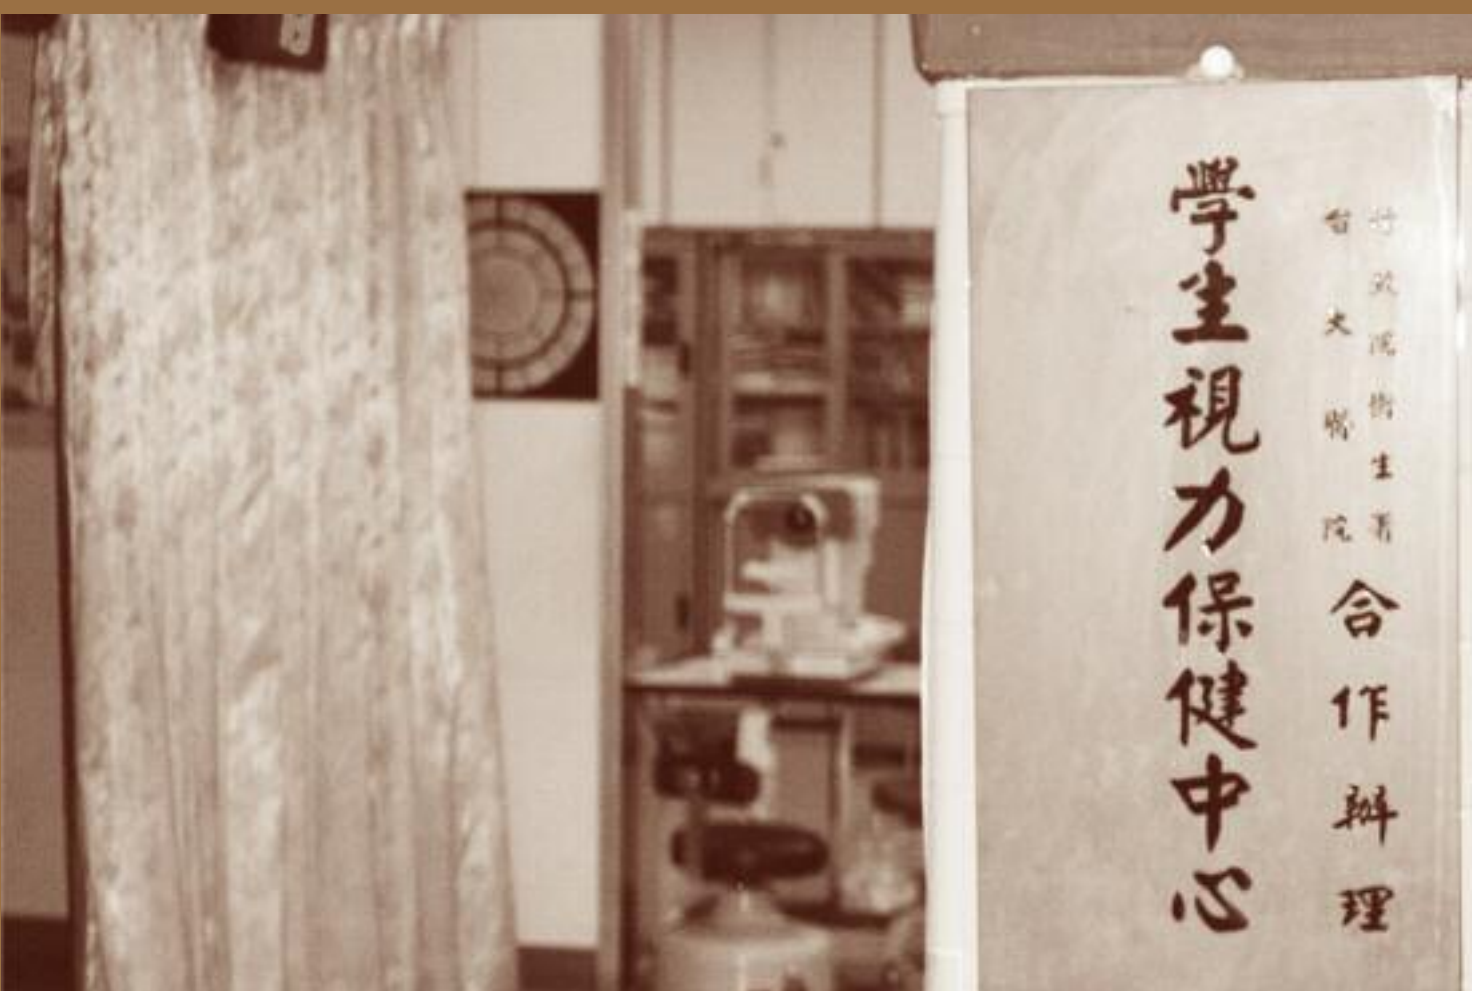 行政院衛生署
台大醫院
合作辦理
學生視力保健中心